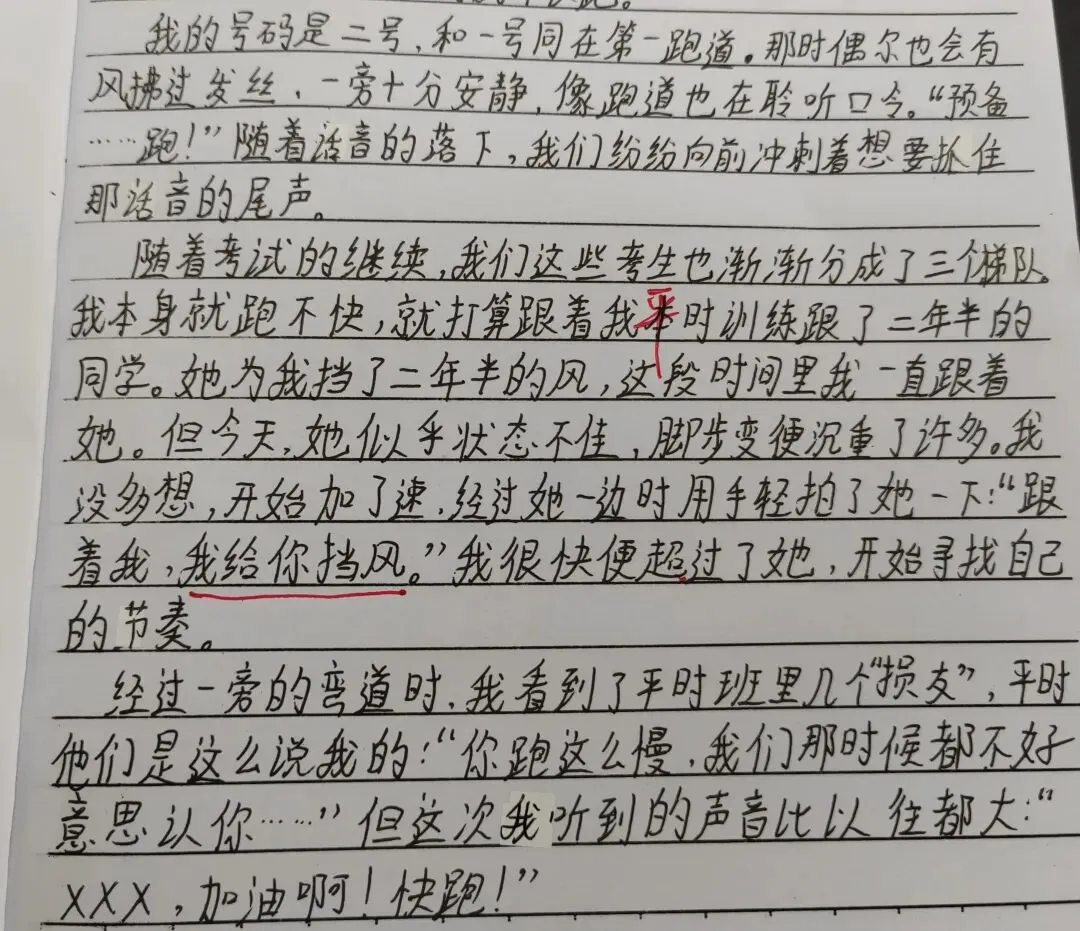 我的号码是二号，和一号同在第一跑道。那时偶尔也会有
风拂过发丝，一旁十分安静，像跑道也在聆听口令。“预备
……跑！”随着话音的落下，我们纷纷向前冲刺着想要抓住
那话音的尾声。
随着考试的继续，我们这些考生也渐渐分成了三个梯队。
我本身就跑不快，就打算跟着我平时训练跟了二年半的
同学。她为我挡了二年半的风，这段时间里我一直跟着
她。但今天，她似乎状态不佳，脚步变便沉重了许多。我
没多想，开始加了速，经过她一边时用手轻拍了她一下：“跟
着我，我给你挡风。”我很快便超过了她，开始寻找自己
的节奏。
经过一旁的弯道时，我看到了平时班里几个“损友”，平时
他们是这么说我的：“你跑这么慢，我们那时候都不好
意思认你……”但这次我听到的声音比以往都大：“
XXX，加油啊！快跑！”